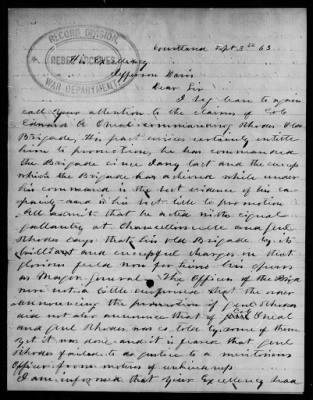 RECORD DIVISION
REBEL ARCHIVES
WAR DEPARTMENT
Courtland Sept 3rd 63
His Excellency
Jefferson Davis
Dear Sir
I beg leave to again
call your attention to the claims of Col
Edward A Oneal commanding Rhodes Old
Brigade, His past services certainly entitle
him to promotion, he has commanded
the Brigade since Jany last and the
which the Brigade has achieved while under
his command is the best evidence of his ca-
pacity and is his best title to promotion
All admit that he acted with signal
gallantry at Chancellorsville and Genl
Rhodes says that his old Brigade by its
brilliant and successful charges on that
glorious field won for him his spurs
as Major General. The Officers of the Brigd
were not a little surprised that the order
announcing the promotion of Genl Rhodes
did not also announce that of Col Oneal
and Genl Rhodes was so told by some of them
yet it was not done and it is feared that Genl
Rhodes failed to do justice to a meritorious
Officer from motives of
I am informed that Your Excellency had